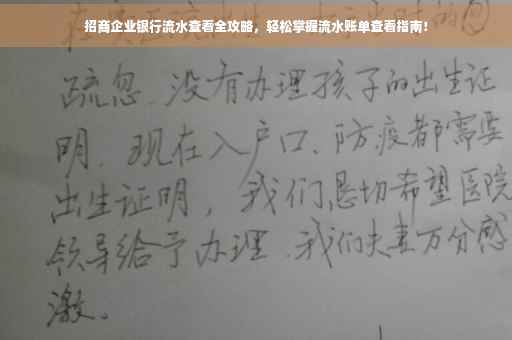 招商企业银行流水查看全攻略，轻松掌握流水账单查看指南！
疏忽、没有办理孩子的出生证
明、现在入户口、防疫都需要
出生证明，我们恳切希望医院
领导给予办理、我们夫妻万分感
激。